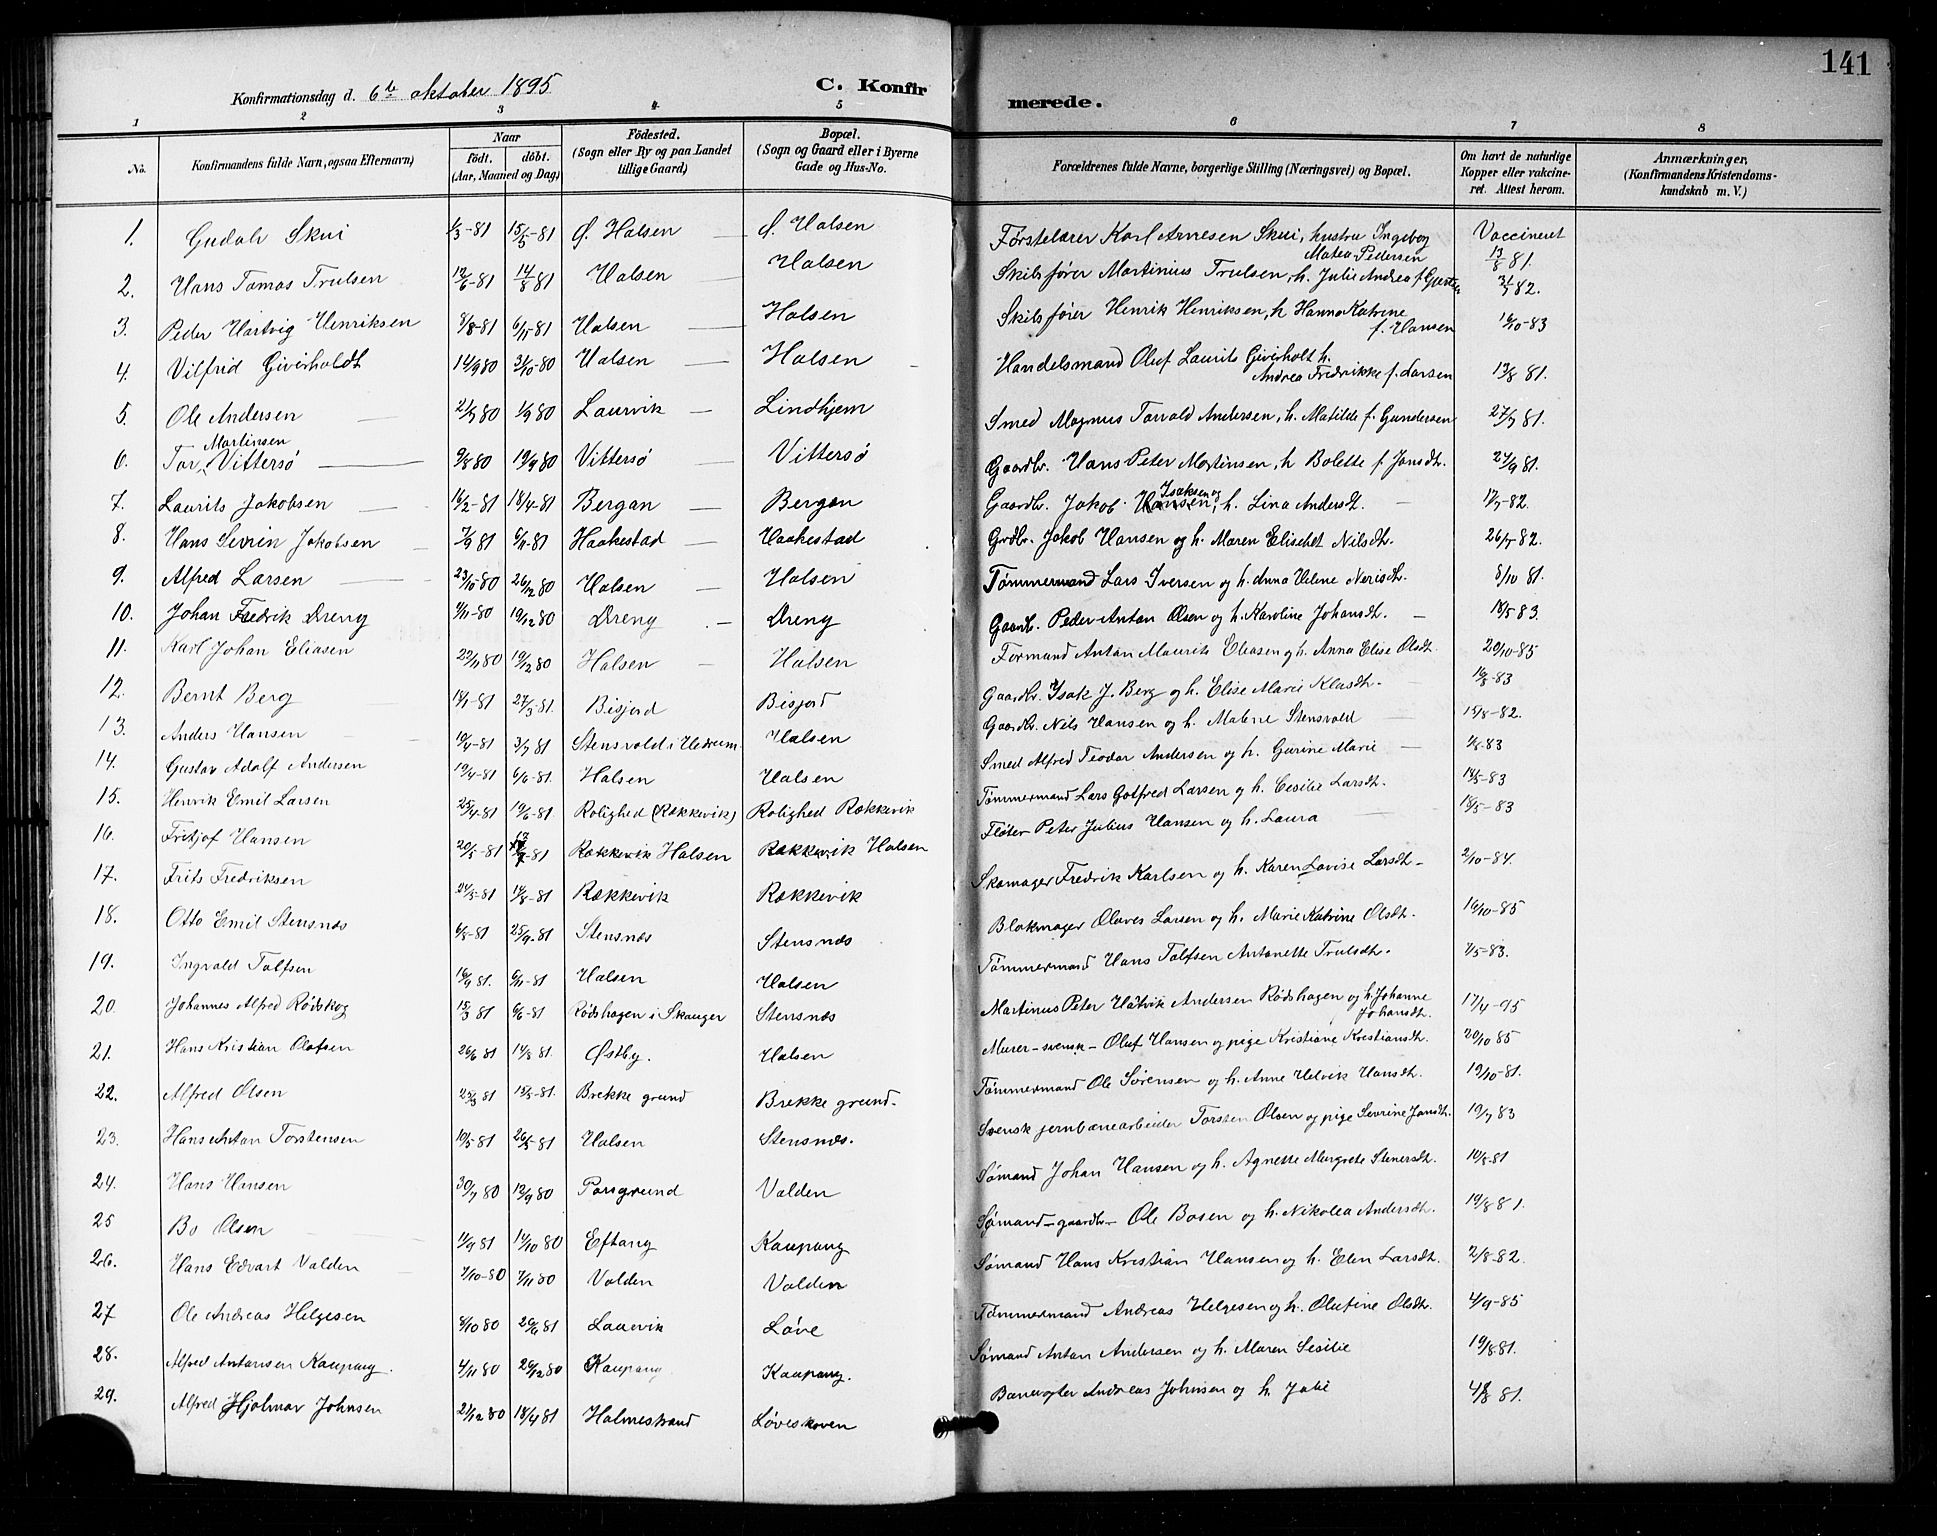 141
Konfirmationsdag d. 6te oktober 1895
C. Konfirmerede.
1 2 3 4 5 6 7 8
No. Konfirmandens fulde Navn, ogsaa Efternavn) Naar født. døbt. (Aar, Maaned og Dag) Fødested. (Sogn eller By og paa Landet tillige Gaard) Bopæl. (Sogn og Gaard eller i Byerne Gade og Hus-No. Forældrenes fulde Navne, borgerlige Stilling (Næringsvei) og Bopæl. Om havt de naturlige Kopper eller vakcineret. Attest herom. Anmærkninger, (Konfirmandens Kristendomskundskab m. V.)
1. Gudolv Skui 1/3-81 15/5-81 f. Halsen f. Halsen Førstelærer Karl Arnesen Skui, hustru Ingeborg Matea Pedersen Vaccineret 13/8 81.
2. Hans Tomas Trulsen 12/6-81 14/8 81 Halsen Halsen Skibsfører Martinius Trulsen, h. Julie Andrea 82.
3. Peder Hartvig Henriksen 8/8-81 6/11-81 Halsen Halsen Skibsfører Henrik Henriksen, h Hanna Katrine f. Hansen 16/10-83
4. Vilfrid Giverholdt 14/9 80 31/10-80 Halsen Halsen Handelsmand Oluf Laurits Giverholt h. Andrea Fredrikke f. Larsen 13/8 81.
5. Ole Andersen 2/7 80 1/9 80 Laurvik Lindhjem Smed Magnus Torvald Andersen, h. Matilde f. Gundersen 27/7 81.
6. Tor Martinsen Vittersø 9/8 80 19/9 80 Vittersø Vittersø Gaardbr. Hans Peter Mortinsen, h Bolette f. Jansdt. 24/9 81.
7. Laurits Jakobsen 16/2-81 18/4-81 Bergan Bergan Gaardbr. Jakob Isaksen og h. Lina Andersdt. 17/7-82.
8. Hans Sevrin Jakobsen 7/9 81 6/11-81 Haakestad Haakestad Grdbr. Jakob Hansen og h. Maren Elisebet Nilsdt. 26/7 82.
9. Alfred Larsen 23/10-80 26/12 80 Halsen Halsen Tømmermand Lars Iversen og h. Anna Helene Nerisdt. 8/10 81.
10. Johan Fredrik Dreng 9/11-80 19/12 80 Dreng Dreng Gaardb. Peder Anton Olsen og h. Karoline Johansdt. 18/5 83.
11. Karl Johan Eliasen 22/11 80 19/12 80 Halsen Halsen Formand Anton Maurits Eliasen og h. Anna Elise Olsdt. 20/10-85
12. Bernt Berg 14/1-81 27/3 81. Bisjord Bisjord Gaardbr. Isak J. Berg og h. Elise Marie Klasdt. 16/8-83
13. Anders Hansen 10/4-81 3/7 81 Stensvold i Hedrum Halsen Gaardbr. Nils Hansen og h. Malene Stensvold 15/8-82.
14. Gustav Adolf Andersen 19/4-81 6/6-81 Halsen Halsen Smed Alfred Teodor Andersen og h. Gurine Marie 1/8-83
15. Henrik Emil Larsen 25/4-81 19/6-81 Rolighed (Rækkevik) Rolighed Rækkevik Tømmermand Lars Gotfred Larsen og h. Cesilie Larsdt. 18/5-83
16. Fritjof Hansen 20/5-81 17/7-81 Rækkevik Halsen Rækkevik Halsen Fløter Peter Julius Hansen og h. Laura 18/5-83
17. Frits Fredriksen 24/5-81 14/8-81 Rækkevik Rækkevik Skomager Fredrik Karlsen og h. Karen Lovise Larsdt. 2/10-84.
18. Otto Emil Stensnæs 6/8-81 25/9-81 Stensnæs Stensnæs Blokmager Olaves Larsen og h. Marie Katrine Olsdt. 16/10-85
19. Ingvald Tolfsen 16/9 81. 6/11-81 Halsen Halsen Tømmermand Hans Tolfsen Antonette Trulsdt. 7/5-83.
20. Johannes Alfred Rødskog 15/3 81 6/6-81 Rødshagen i Skauger Stensnæs Martinus Peter Hartvik Andersen Rødshagen og h. Johanne Johansdt. 17/4-95
21. Hans Kristian Olafsen 26/6 81 14/8 81. Østby. Halsen Murer-svensk-Oluf Hansen og pige Kristiane Kristiansdt. 20/10 85
22. Alfred Olsen 25/3 81 15/5-81. Brekke grund Brekke grund. Tømmermand Ole Sørensen og h. Anne Helvik Hansdt. 19/10-81.
23. Hans Anton Torstensen 10/5 81 26/5 81 Halsen Stensnæs. Svensk jernbanearbeider Torsten Olsen og pige Sevrine Jansdt. 19/7 83
24. Hans Hansen 30/7 80 12/9 80 Porsgrund Valden Sømand Johan Hansen og h. Agnette Margrete Stenersdt. 10/8-81
25 Bo Olsen 11/9 81 14/10 80 Eftang Kaupang Sømand-gaardbr- Ole Bosen og h. Nikolea Andersdt. 19/8 81.
26. Hans Edvart Valden 7/10-80 7/11 80 Valden Valden Sømand Hans Kristian Hansen og h. Elen Larsdt. 2/8-82.
27 Ole Andreas Helgesen 8/10 80 20/6 81 Laurvik Løve Tømmermand Andreas Helgesen og h. Olufine Olsdt. 4/9-85
28. Alfred Antonsen Kaupang. 4/11 80 26/12 80 Kaupang Kaupang. Sømand Anton Andersen og h. Maren Sesilie 19/8 81.
29. Alfred Hjalmar Johnsen 21/12 80 18/4 81 Holmestrand Løveskoven Banevogter Andreas Johnsen og h. Julie 4/8 81.